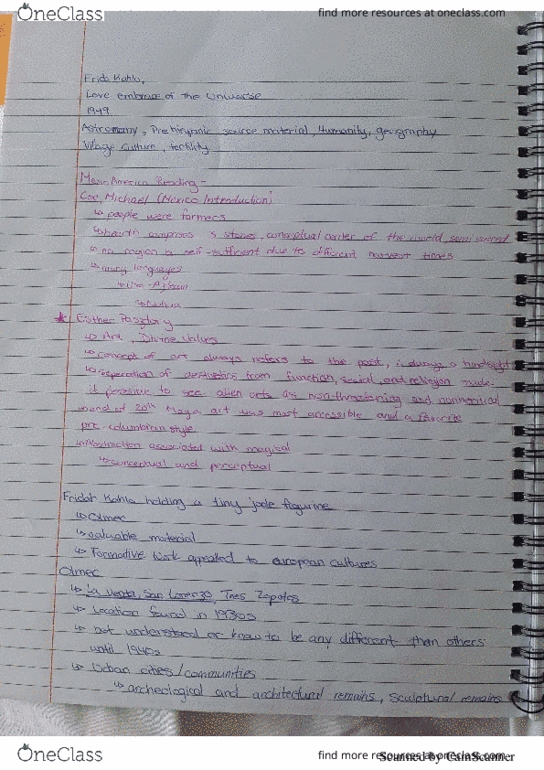 OneClass
find more resources at oneclass.com
Frida Kahlo,
Love embrace of the Universe
1949
Astromany, Prehispanic source material, Humanity, geography
Village Culture, fertility
America Reading -
Coe, Michael (Mexico Introduction)
↳ people were farmers
↳ 3 stones, conceptual center of the world, semi
↳ no region is self-sufficient due to different harvest times
↳ many languages
↳ Uto-
* Esther Pasztory
↳ Art, Divine Values
↳ concept of art always refers to the past, is always a hindsight
↳ seperation of aesthetics from function, social, and religion made
it possible to see alien arts as non-threatening and
↳ end of 20th Maya art was most accessible and a favorite
pre-columbian style
↳ abstraction associated with magical
↳ conceptual and perceptual
Fridah Kahlo holding a tiny jade figurine
↳ Olmec
↳ valuable material
↳ Formative Work appealed to european cultures
Olmec
↳ La Venta, San Lorenzo, Tres Zapotes
↳ Location found in 1930s
↳ not understood or know to be any different than others
until 1940s
↳ Urban cities/communities
↳ archeological and architectural remains, sculptural remains
OneClass
find more resources at oneclass.com
Scanned by CamScanner